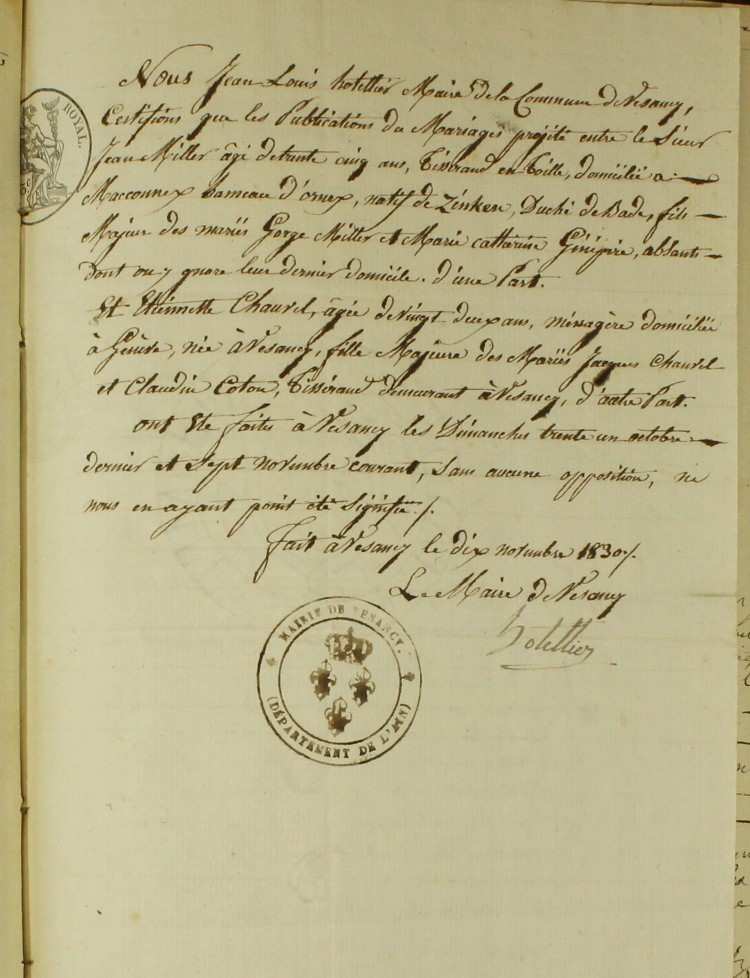 ROYAL.
Nous Jean Louis hotellier Maire de la Commune de Vesancy,
Certifions que les Publications du Mariages projété entre le Sieur
Jean Miller âgé de trente cinq ans, Tisserand en Toille, domicilié a
Macconnex hameau d'ornex, natif de Zinken, Duché de Bade, fils
Majeur des mariés Gorge Miller et Marie catharine, absants
dont on y gnore leur dernier domicile. d'une Part.
Et Etiennette Chauvel, âgée de vingt deux ans, ménagère domiciliée
à Genève, née à Vesancy, fille Majeure des Mariés Jacques Chauvel
et Claudin Coton, Tisserand demeurant à Vesancy, d'autre Part.
ont Eté faites à Vesancy les Dimanches trente un octobre
dernier et Sept novembre courant, sans aucune opposition, ne
nous en ayant point été Signifié ./.
fait à Vesancy le dix novembre 1830 ./.
Le Maire de Vesancy
hotellier
MAIRIE DE VESANCY.
(DÉPARTEMENT DE L'AIN)